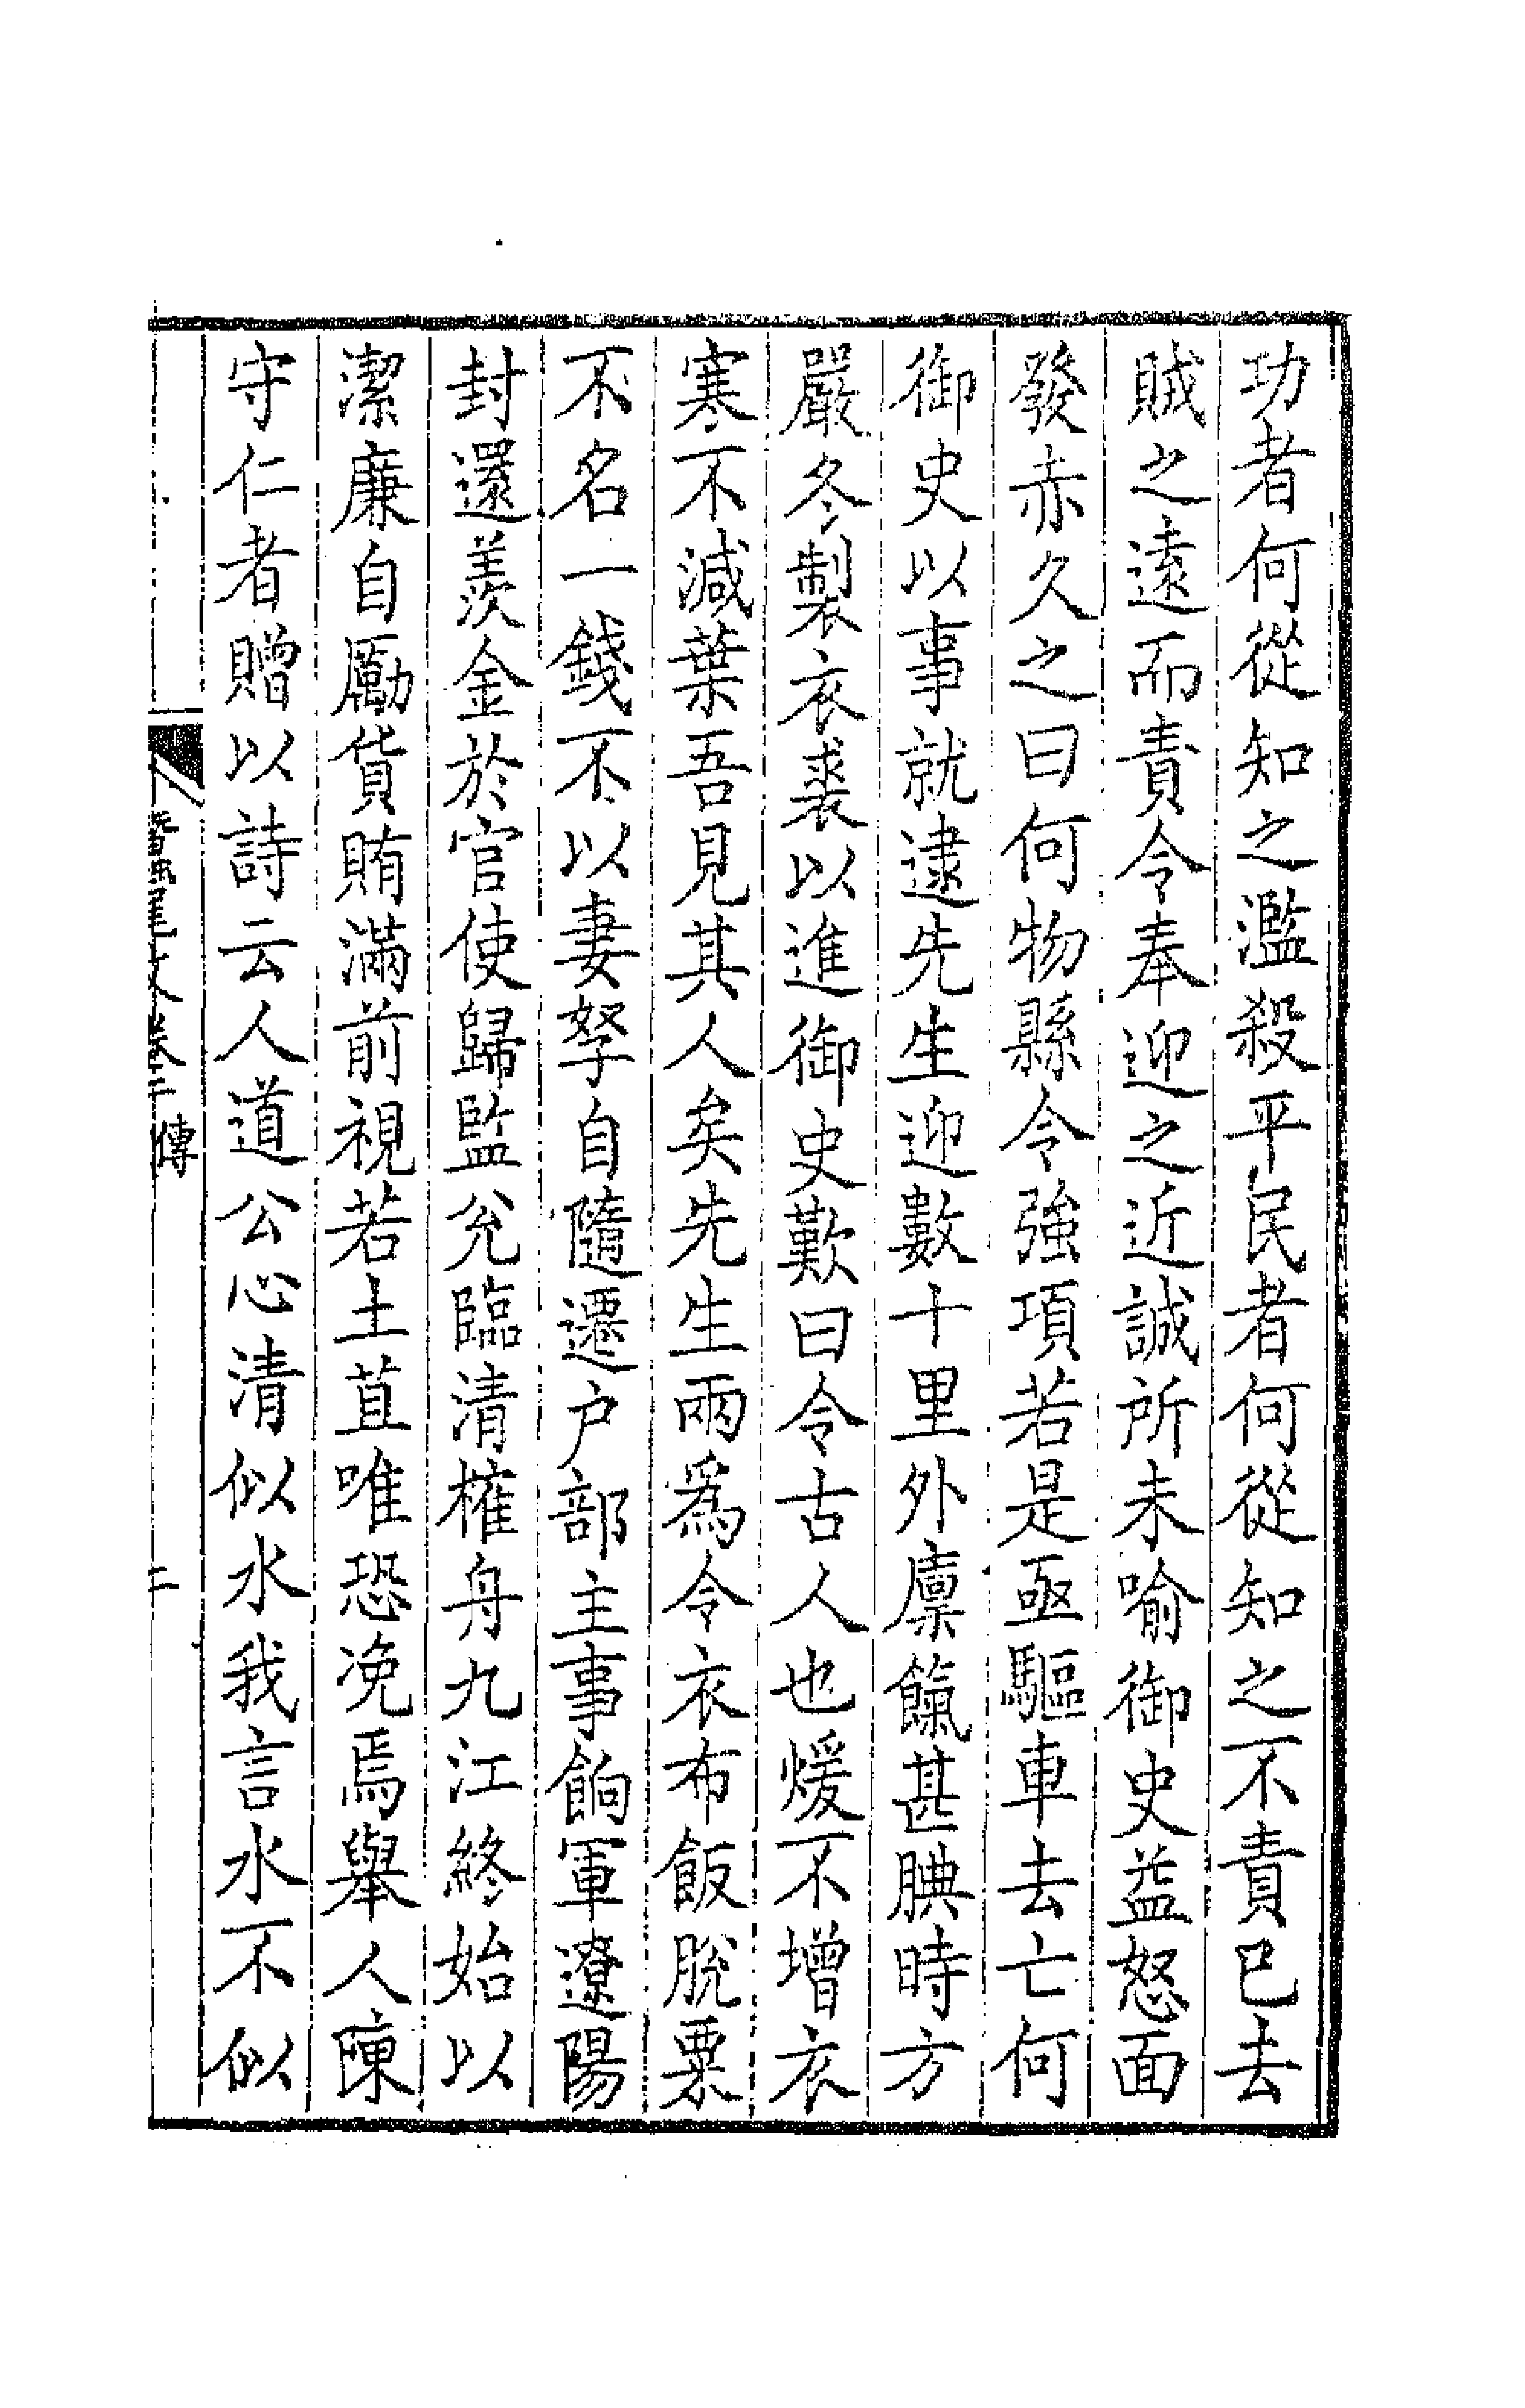 功者何從知之濫殺平民者何從知之不責已去
賊之遠而責令奉迎之近誠所未喻御史益怒面
發赤久之曰何物縣令強項若是亟驅車去亡何
御史以事就逮先生迎數十里外廪餼甚腆時方
嚴冬製衣裘以進御史歎曰令古人也煖不增衣
寒不減葉吾見其人矣先生兩爲令衣布飯脫粟
不名一錢不以妻孥自隨遷户部主事餉軍遼陽
封還羡金於官使歸監兊臨清榷舟九江終始以
潔廉自勵貨賄滿前視若土苴唯恐浼焉舉人陳
守仁者贈以詩云人道公心清似水我言水不似
文卷三
傳
二